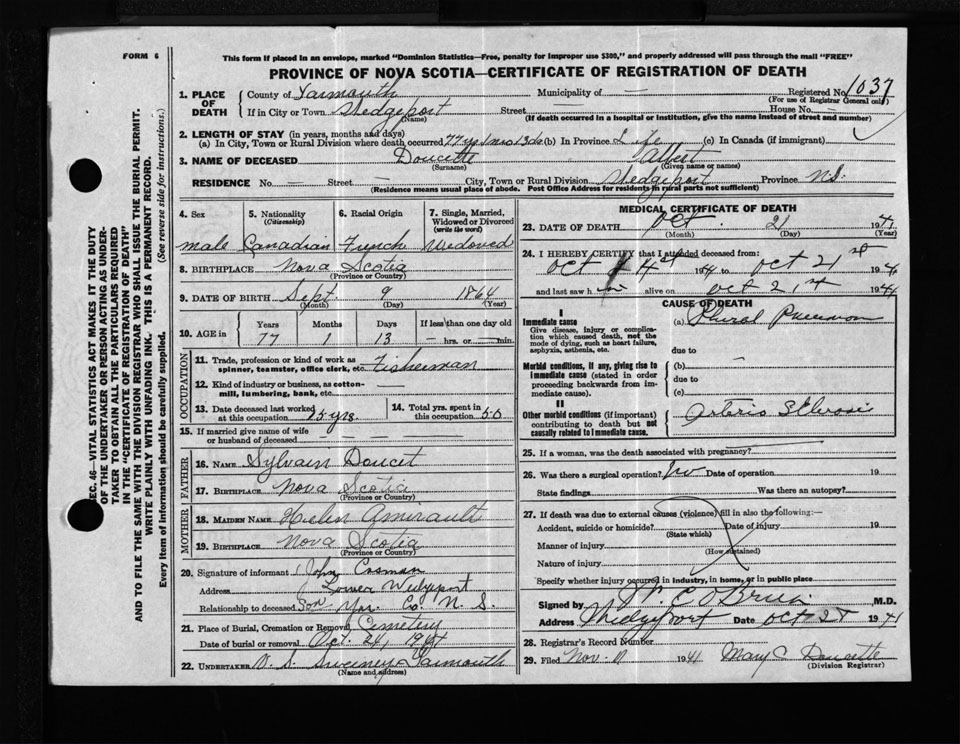 FORM 6
This form if placed in an envelope, marked "Dominion Statistics—Free, penalty for improper use $300," and properly addressed will pass through the mail "FREE"
PROVINCE OF NOVA SCOTIA—CERTIFICATE OF REGISTRATION OF DEATH
1. PLACE OF DEATH County of Yarmouth Municipality of — Registered No. 1037
(For use of Registrar General only)
If in City or Town Wedgeport Street — House No. —
(Name) (If death occurred in a hospital or institution, give the name instead of street and number)
2. LENGTH OF STAY (in years, months and days)
(a) In City, Town or Rural Division where death occurred 77 yrs 1 mo 13 ds (b) In Province Life (c) In Canada (if immigrant)
3. NAME OF DECEASED Doucette Albert
(Surname) (Given name or names)
RESIDENCE No. — Street — City, Town or Rural Division Wedgeport Province N.S.
(Residence means usual place of abode. Post Office Address for residents in rural parts not sufficient)
4. Sex 5. Nationality (Citizenship) 6. Racial Origin 7. Single, Married, Widowed or Divorced (write the word)
male Canadian French Widowed
8. BIRTHPLACE Nova Scotia
(Province or Country)
9. DATE OF BIRTH Sept. 9 1864
(Month) (Day) (Year)
10. AGE in Years Months Days If less than one day old
77 1 13 — hrs. or — min.
OCCUPATION
11. Trade, profession or kind of work as spinner, teamster, office clerk, etc. Fisherman
12. Kind of industry or business, as cotton-mill, lumbering, bank, etc.
13. Date deceased last worked at this occupation 15 yrs 14. Total yrs. spent in this occupation 50
15. If married give name of wife or husband of deceased —
FATHER
16. NAME Sylvain Doucet
17. BIRTHPLACE Nova Scotia
(Province or Country)
MOTHER
18. MAIDEN NAME Helen Amirault
19. BIRTHPLACE Nova Scotia
(Province or Country)
20. Signature of informant John Cosman
Address Lower Wedgeport
Relationship to deceased Son Yar. Co. N. S.
21. Place of Burial, Cremation or Removal Cemetery
Date of burial or removal Oct. 24, 1941
22. UNDERTAKER V. S. Sweeney Yarmouth
(Name and address)
MEDICAL CERTIFICATE OF DEATH
23. DATE OF DEATH Oct. 21 1941
(Month) (Day) (Year)
24. I HEREBY CERTIFY that I attended deceased from:
Oct 1941 to Oct 21st 1941
and last saw h im alive on Oct 21st 1941
CAUSE OF DEATH
I
Immediate cause
Give disease, injury or complication which caused death, not the mode of dying, such as heart failure, asphyxia, asthenia, etc.
(a)
due to —
Morbid conditions, if any, giving rise to immediate cause (stated in order proceeding backwards from immediate cause).
(b)
due to
(c)
II
Other morbid conditions (if important) contributing to death but not causally related to immediate cause.
Arterio
25. If a woman, was the death associated with pregnancy?
26. Was there a surgical operation? No Date of operation 19
State findings Was there an autopsy?
27. If death was due to external causes (violence) fill in also the following:—
Accident, suicide or homicide? Date of injury 19
(State which)
Manner of injury
(How sustained)
Nature of injury
Specify whether injury occurred in industry, in home, or in public place
Signed by W. C. O'Brien M.D.
Address Wedgeport Date Oct 28 1941
28. Registrar's Record Number
29. Filed Nov. 1941 Mary C Doucette
(Division Registrar)
SEC. 46—VITAL STATISTICS ACT MAKES IT THE DUTY
OF THE UNDERTAKER OR PERSON ACTING AS UNDERTAKER TO OBTAIN ALL THE PARTICULARS REQUIRED
IN THE "CERTIFICATE OF REGISTRATION OF DEATH"
AND TO FILE THE SAME WITH THE DIVISION REGISTRAR WHO SHALL ISSUE THE BURIAL PERMIT.
WRITE PLAINLY WITH UNFADING INK. THIS IS A PERMANENT RECORD.
Every item of information should be carefully supplied. (See reverse side for instructions.)